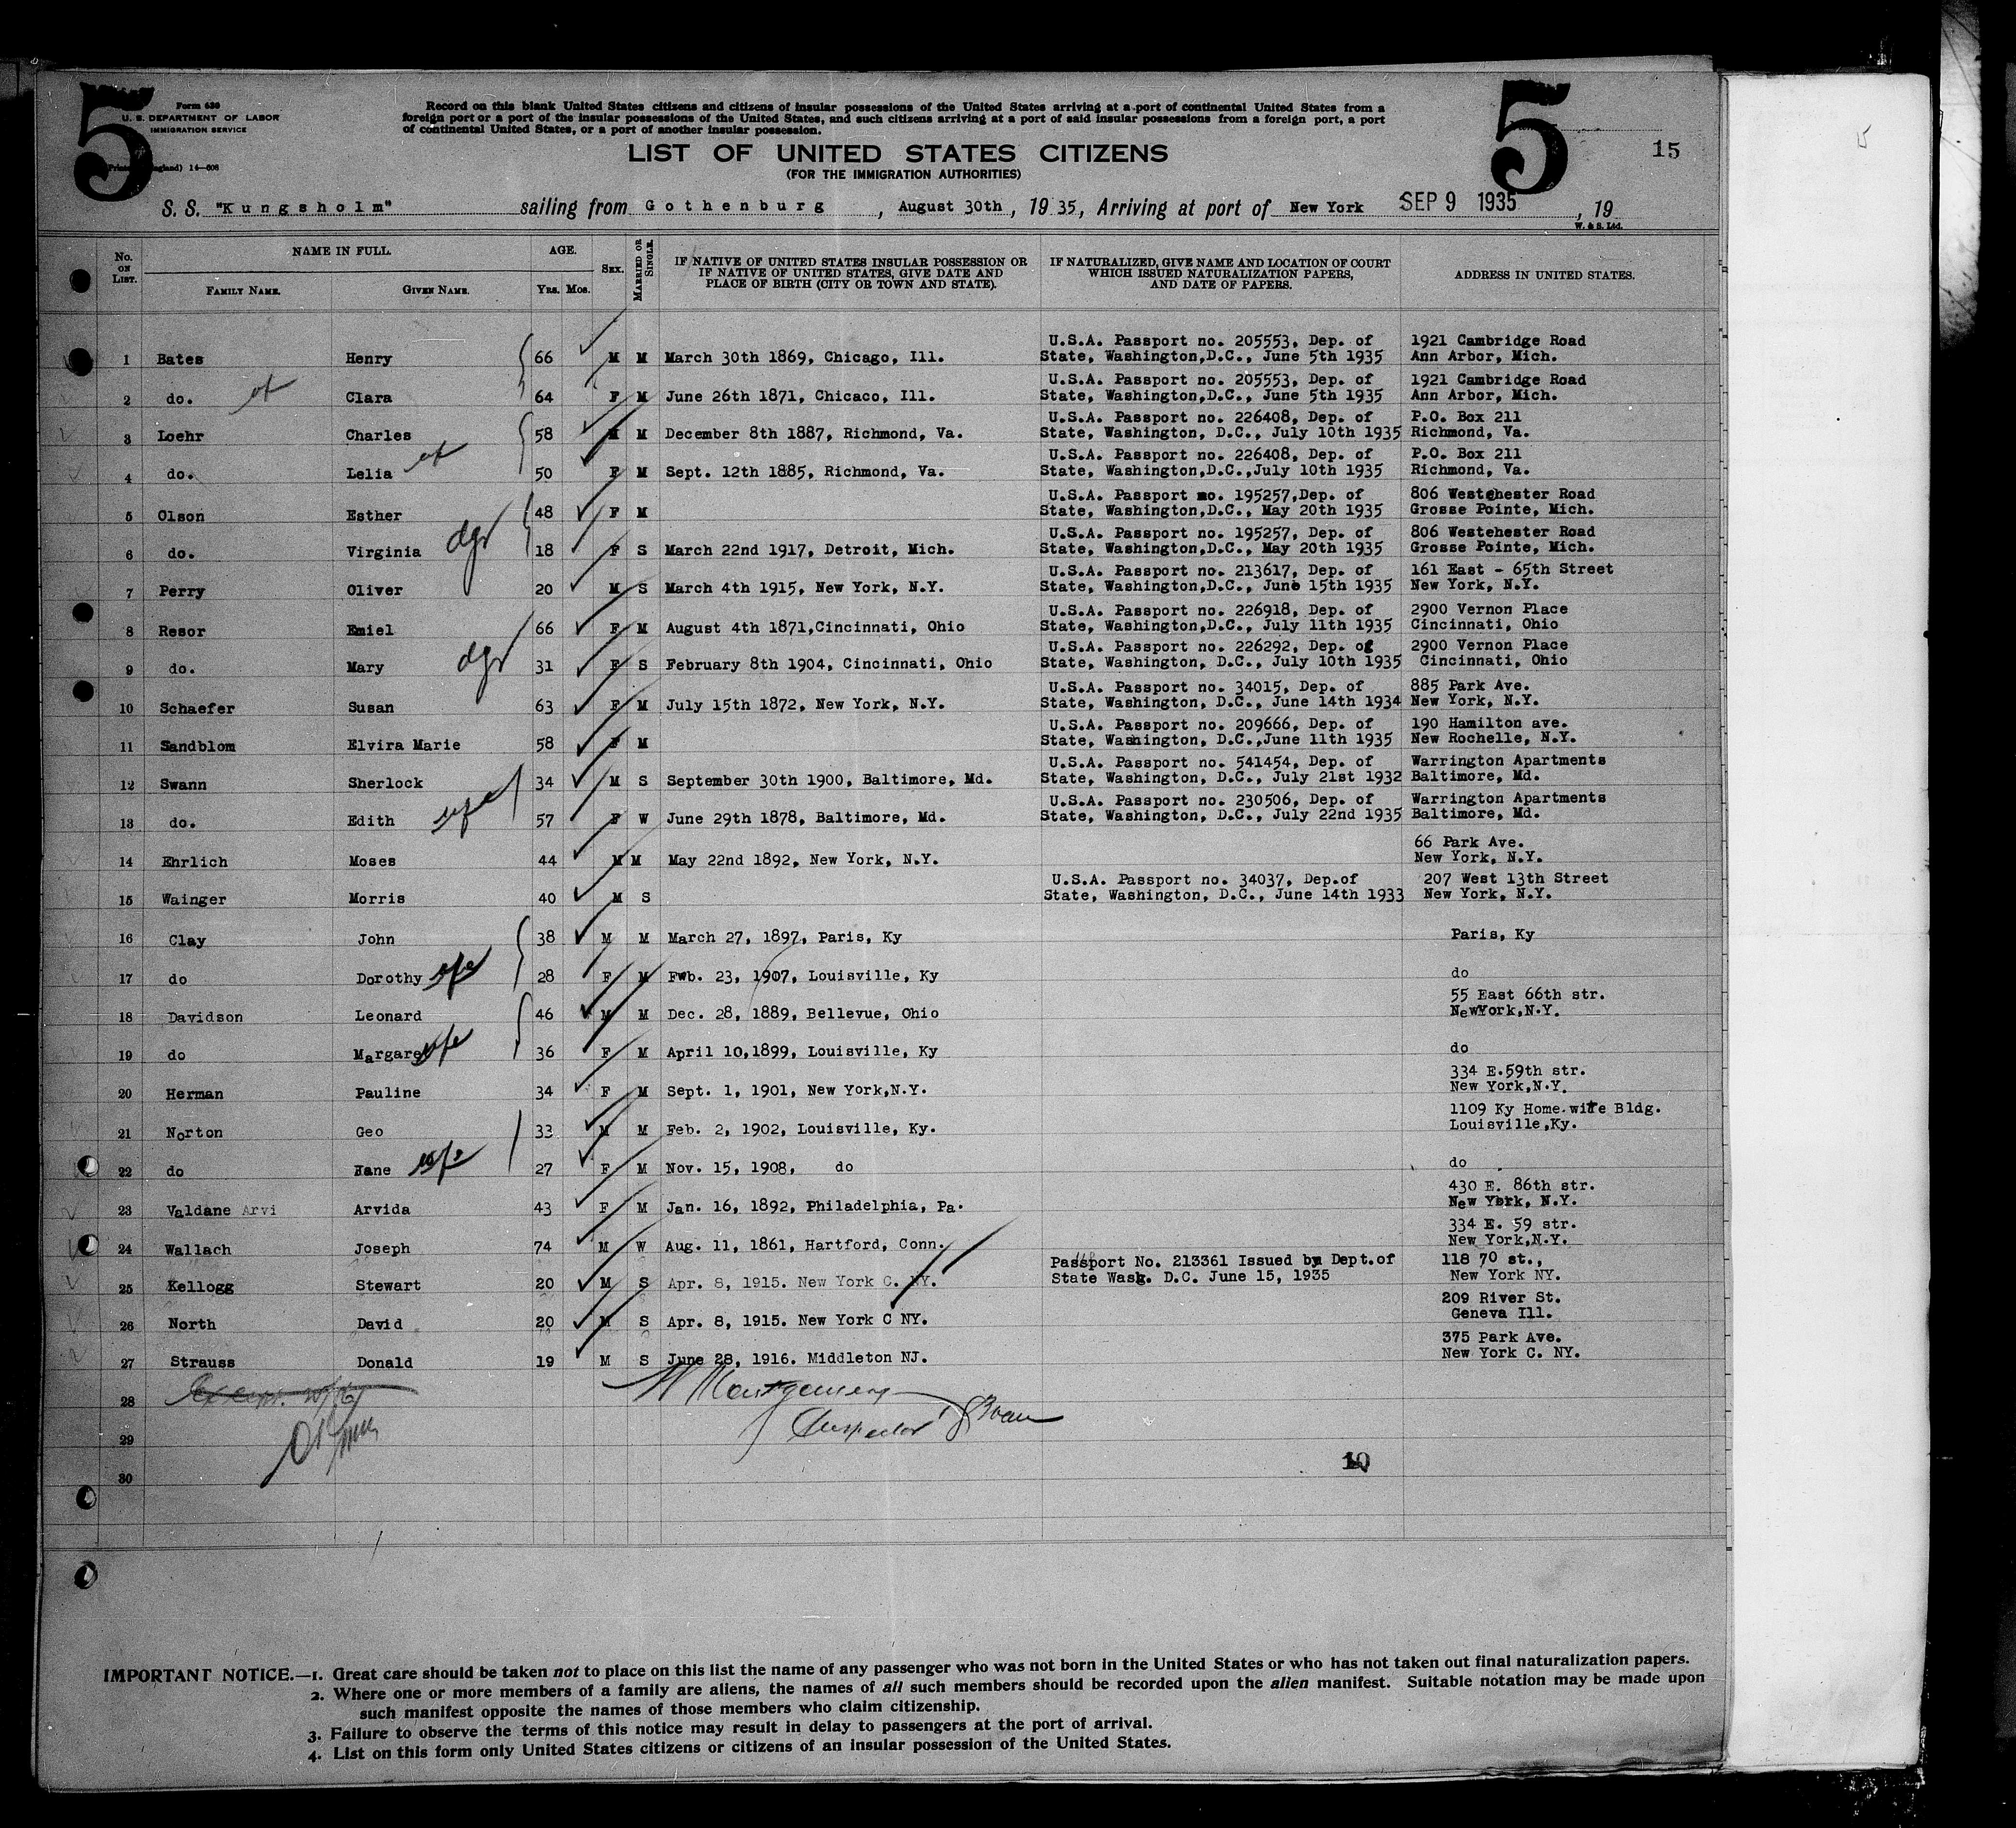 5
Form 630
U. S. DEPARTMENT OF LABOR
IMMIGRATION SERVICE
14—608
Record on this blank United States citizens and citizens of insular possessions of the United States arriving at a port of continental United States from a
foreign port or a port of the insular possessions of the United States, and such citizens arriving at a port of said insular possessions from a foreign port, a port
of continental United States, or a port of another insular possession.
5
15
LIST OF UNITED STATES CITIZENS
(FOR THE IMMIGRATION AUTHORITIES)
S. S. "Kungsholm" sailing from Gothenburg, August 30th, 1935, Arriving at port of New York SEP 9 1935, 19
W. & S. Ltd.
No. on List. NAME IN FULL. AGE. Sex. Married or Single. IF NATIVE OF UNITED STATES INSULAR POSSESSION OR IF NATIVE OF UNITED STATES, GIVE DATE AND PLACE OF BIRTH (CITY OR TOWN AND STATE). IF NATURALIZED, GIVE NAME AND LOCATION OF COURT WHICH ISSUED NATURALIZATION PAPERS, AND DATE OF PAPERS. ADDRESS IN UNITED STATES.
Family Name. Given Name. Yrs. Mos.
U.S.A. Passport no. 205553, Dep. of 1921 Cambridge Road
1 Bates Henry 66 M M March 30th 1869, Chicago, Ill. State, Washington,D.C., June 5th 1935 Ann Arbor, Mich.
U.S.A. Passport no. 205553, Dep. of 1921 Cambridge Road
2 do. Clara 64 F M June 26th 1871, Chicaco, Ill. State, Washington,D.C., June 5th 1935 Ann Arbor, Mich.
U.S.A. Passport no. 226408, Dep. of P.O. Box 211
3 Loehr Charles 58 M M December 8th 1887, Richmond, Va. State, Washington, D.C., July 10th 1935 Richmond, Va.
U.S.A. Passport no. 226408, Dep. of P.O. Box 211
4 do. Lelia 50 F M Sept. 12th 1885, Richmond, Va. State, Washington,D.C.,July 10th 1935 Richmond, Va.
U.S.A. Passport no. 195257,Dep. of 806 Westchester Road
5 Olson Esther 48 F M State, Washington,D.C., May 20th 1935 Grosse Pointe, Mich.
U.S.A. Passport no. 195257, Dep. of 806 Westehester Road
6 do. Virginia dgr 18 F S March 22nd 1917, Detroit, Mich. State, Washington,D.C., May 20th 1935 Grosse Pointe, Mich.
U.S.A. Passport no. 213617, Dep. of 161 East - 65th Street
7 Perry Oliver 20 M S March 4th 1915, New York, N.Y. State, Washington,D.C., June 15th 1935 New York, N.Y.
U.S.A. Passport no. 226918, Dep. of 2900 Vernon Place
8 Resor Emiel 66 F M August 4th 1871,Cincinnati, Ohio State, Washington,D.C., July 11th 1935 Cincinnati, Ohio
U.S.A. Passport no. 226292, Dep. of 2900 Vernon Place
9 do. Mary dgr 31 F S February 8th 1904, Cincinnati, Ohio State, Washington, D.C., July 10th 1935 Cincinnati, Ohio
U.S.A. Passport no. 34015, Dep. of 885 Park Ave.
10 Schaefer Susan 63 F M July 15th 1872, New York, N.Y. State, Washington, D.C., June 14th 1934 New York, N.Y.
U.S.A. Passport no. 209666, Dep. of 190 Hamilton ave.
11 Sandblom Elvira Marie 58 F M State, Washington, D.C.,June 11th 1935 New Rochelle, N.Y.
U.S.A. Passport no. 541454, Dep. of Warrington Apartments
12 Swann Sherlock 34 M S September 30th 1900, Baltimore, Md. State, Washington, D.C., July 21st 1932 Baltimore, Md.
U.S.A. Passport no. 230506, Dep. of Warrington Apartments
13 do. Edith wfe 57 F W June 29th 1878, Baltimore, Md. State, Washington, D.C., July 22nd 1935 Baltimore, Md.
66 Park Ave.
14 Ehrlich Moses 44 M M May 22nd 1892, New York, N.Y. New York, N.Y.
U.S.A. Passport no. 34037, Dep.of 207 West 13th Street
15 Wainger Morris 40 M S State, Washington, D.C., June 14th 1933 New York, N.Y.
16 Clay John 38 M M March 27, 1897, Paris, Ky Paris, Ky
17 do Dorothy wfe 28 F M Fwb. 23, 1907, Louisville, Ky do
55 East 66th str.
18 Davidson Leonard 46 M M Dec. 28, 1889, Bellevue, Ohio NewYork,N.Y.
19 do Margaret wfe 36 F M April 10,1899, Louisville, Ky do
334 E.59th str.
20 Herman Pauline 34 F M Sept. 1, 1901, New York,N.Y. New York,N.Y.
1109 Ky Home wife Bldg.
21 Norton Geo 33 M M Feb. 2, 1902, Louisville, Ky. Louisville,Ky.
22 do Jane wfe 27 F M Nov. 15, 1908, do do
430 E. 86th str.
23 Valdane Arvi Arvida 43 F M Jan. 16, 1892, Philadelphia, Pa. New York, N.Y.
334 E. 59 str.
24 Wallach Joseph 74 M W Aug. 11, 1861, Hartford, Conn. New York,N.Y.
Passport No. 213361 Issued by Dept.of 118 70 st.,
25 Kellogg Stewart 20 M S Apr. 8, 1915. New York C. NY. State Wash. D.C. June 15, 1935 New York NY.
209 River St.
26 North David 20 M S Apr. 8, 1915. New York C NY. Geneva Ill.
375 Park Ave.
27 Strauss Donald 19 M S June 28, 1916. Middleton NJ. New York C. NY.
28 Montgomery
29 Inspector
30 10
IMPORTANT NOTICE.—1. Great care should be taken not to place on this list the name of any passenger who was not born in the United States or who has not taken out final naturalization papers.
2. Where one or more members of a family are aliens, the names of all such members should be recorded upon the alien manifest. Suitable notation may be made upon
such manifest opposite the names of those members who claim citizenship.
3. Failure to observe the terms of this notice may result in delay to passengers at the port of arrival.
4. List on this form only United States citizens or citizens of an insular possession of the United States.